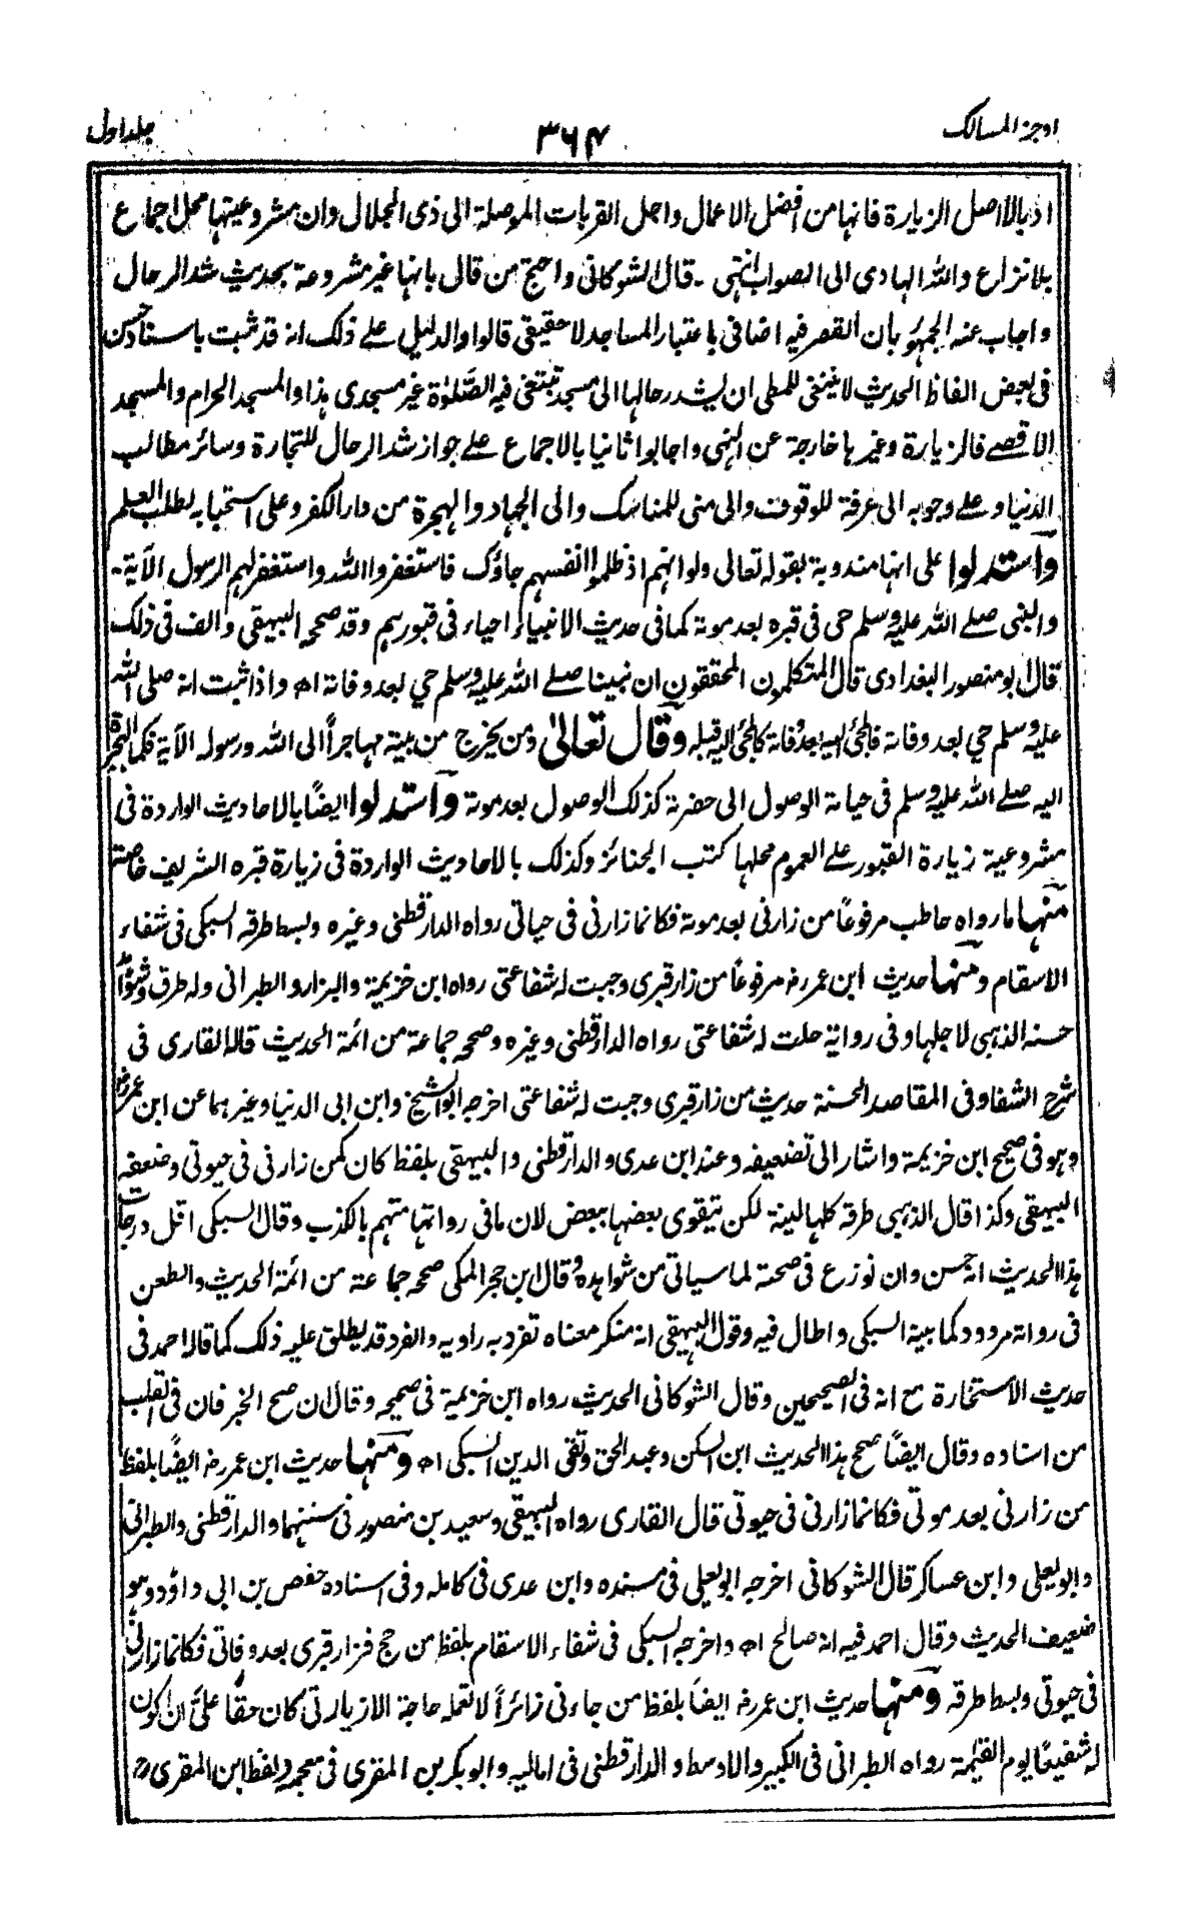 اوجز المسالك
٣٦٤
جلد اول
ادبالا اصل الزيارة فانها من افضل الاعمال واجل القربات الموصلة الى ذى الجلال وان مشروعيتها محل اجماع
بلا نزاع والله الهادى الى الصواب انتهى - قال الشوكانى واحتج من قال بانها غير مشروعة بحديث شد الرحال
واجاب عنه الجمهور بأن القصر فيه اضافى باعتبار المساجد لا حقيقى قالوا والدليل على ذلك انه قد ثبت باسناد حسن
فى بعض الفاظ الحديث لا ينبغى للمطى ان يشد رحالها الى مسجد تبتغى فيه الصلوٰة غير مسجدى هذا والمسجد الحرام والمسجد
الاقصے فالزيارة وغيرها خارجة عن النهى واجابوا ثانيا بالاجماع على جواز شد الرحال للتجارة وسائر مطالب
الدنيا وعلے وجوبه الى عرفة للوقوف والى منى للمناسك والى الجهاد والهجرة من دار الكفر وعلى استحبابه لطلب العلم
واستدلوا على انها مندوبة بقوله تعالى ولو انهم اذ ظلموا انفسهم جاؤك فاستغفروا الله واستغفر لهم الرسول الآية-
والنبى صلے الله عليه وسلم حى فى قبره بعد موته كما فى حديث الانبياء احياء فى قبورهم وقد صححه البيهقى والف فى ذلك
قال ابو منصور البغدادى قال المتكلمون المحققون ان نبينا صلے الله عليه وسلم حي بعد وفاته اھ واذا ثبت انه صلى الله
عليه وسلم حي بعد وفاته فالمجئ اليه بعد وفاته كالمجئ اليه قبله وقال تعالىٰ ومن يخرج من بيته مهاجراً الى الله ورسوله الآية فكما الهجرة
اليه صلے الله عليه وسلم فى حياته الوصول الى حضرته كذلك الوصول بعد موته واستدلوا ايضاً بالاحاديث الواردة فى
مشروعية زيارة القبور على العموم محلها كتب الجنائز وكذلك بالاحاديث الواردة فى زيارة قبره الشريف خاصة
منها ما رواه حاطب مرفوعاً من زارنى بعد موته فكانما زارنى فى حياتى رواه الدارقطنى وغيره وبسط طرقه السبكى فى شفاء
الاسقام ومنها حديث ابن عمر رض مرفوعاً من زار قبرى وجبت له شفاعتى رواه ابن خزيمة والبزار والطبرانى وله طرق وشواهد
حسنه الذهبى لاجلها وفى رواية حلت له شفاعتى رواه الدارقطنى وغيره وصححه جماعة من ائمة الحديث قاله القارى فى
شرح الشفا وفى المقاصد الحسنة حديث من زار قبرى وجبت له شفاعتى اخرجه ابو الشيخ وابن ابى الدنيا وغيرهما عن ابن عمر رض
وهو فى صحيح ابن خزيمة واشار الى تضعيفه وعند ابن عدى والدارقطنى والبيهقى بلفظ كان كمن زارنى فى حيوتى وضعفه
البيهقى وكذا قال الذهبى طرقه كلها لينة لكن يتقوى بعضها ببعض لان ما فى رواتها متهم بالكذب وقال السبكى اقل درجات
هذا الحديث انه حسن وان نوزع فى صحته لما سياتى من شواهده وقال ابن حجر المكى صححه جماعة من ائمة الحديث والطعن
فى رواته مردود كما بينه السبكى واطال فيه وقول البيهقى انه منكر معناه تفرد به راويه والفرد قد يطلق عليه ذلك كما قاله احمد فى
حديث الاستخارة مع انه فى الصحيحين وقال الشوكانى الحديث رواه ابن خزيمة فى صحيحه وقال ان صح الخبر فان فى القلب
من اسناده وقال ايضاً صحح هذا الحديث ابن السكن وعبد الحق وتقى الدين السبكى اھ ومنها حديث ابن عمر رض ايضاً بلفظ
من زارنى بعد موتى فكانما زارنى فى حيوتى قال القارى رواه البيهقى وسعيد بن منصور فى سننهما والدارقطنى والطبرانى
وابو يعلى وابن عساكر قال الشوكانى اخرجه ابو يعلى فى مسنده وابن عدى فى كامله وفى اسناده حفص بن ابى داؤد وهو
ضعيف الحديث وقال احمد فيه انه صالح اھ واخرجه السبكى فى شفاء الاسقام بلفظ من حج فزار قبرى بعد وفاتى فكانما زارنى
فى حيوتى وبسط طرقه ومنها حديث ابن عمر رض ايضاً بلفظ من جاءنى زائراً لا تعمله حاجة الا زيارتى كان حقًّا علىَّ ان اكون
له شفيعًا يوم القيٰمة رواه الطبرانى فى الكبير والاوسط والدارقطنى فى اماليه وابو بكر بن المقرى فى معجمه ولفظ ابن المقرى